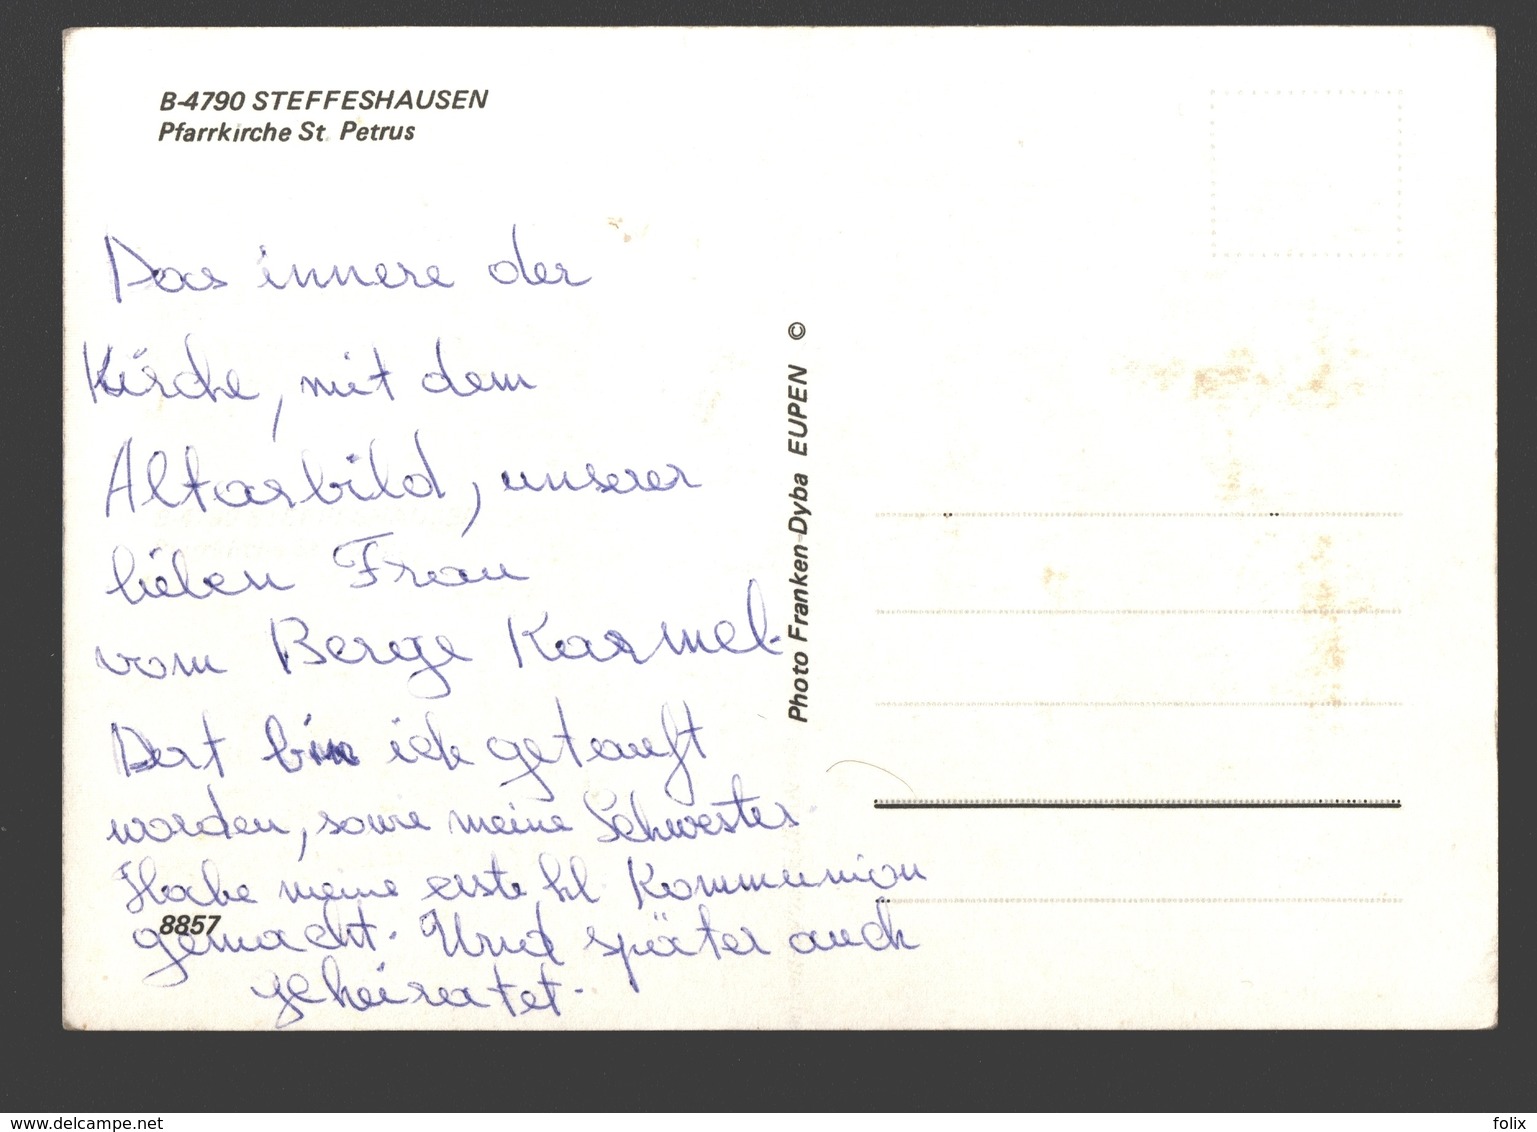 B-4790 STEFFESHAUSEN
Pfarrkirche St. Petrus
Das innere der
Kirche, mit dem
Altarbild, unserer
lieben Frau
vom Berge Karmel.
Dort bin ich getauft
worden, sowie meine Schwester.
Habe meine erste hl Kommunion
gemacht. Und später auch
geheiratet.
8857
Photo Franken-Dyba EUPEN ©
www.delcampe.net
folix